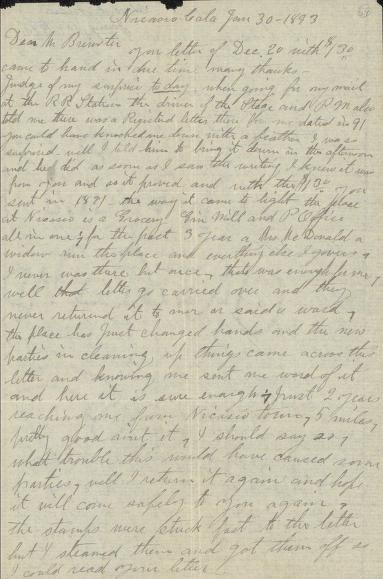 Nicasio Cala Jan 30 - 1893
Dear Mr Brewster
your letter of Dec. 20 with $1.30
came to hand in due time many thanks -
Judge of my surprise to day when going for my mail
at the R R Station the driver of the Stage and P M also
told me there was a Registed letter there for me dated in 91
you could have knocked me down with a feather I was so
surprised well I told him to bring it down in the afternoon
and he did as soon as I saw the writing I knew it was
from you and so it proved and with the $1.30 you
sent in 1891 - the way it came to light the place
at Nicasio is a Grocery Gin Mill and P Office
all in one & for the past 3 year a Mrs McDonald a
widow run the place and everything else I guess,
I never was there but once, that was enough for me,
well that letter go carried over and they
never returned it to me or said a word,
the place has just changed hands and the new
parties in cleaning up things came across this
letter and knowing me sent me word of it
and here it is sure enough & just 2 years
reaching me from Nicasio town, 5 miles,
pretty good aint it, I should say so,
what trouble this would have caused some
parties, well I return it again and hope
it will come safely to you again,
the stamps were stuck fast to the letter
but I steamed them and got them off so
I could read your letter